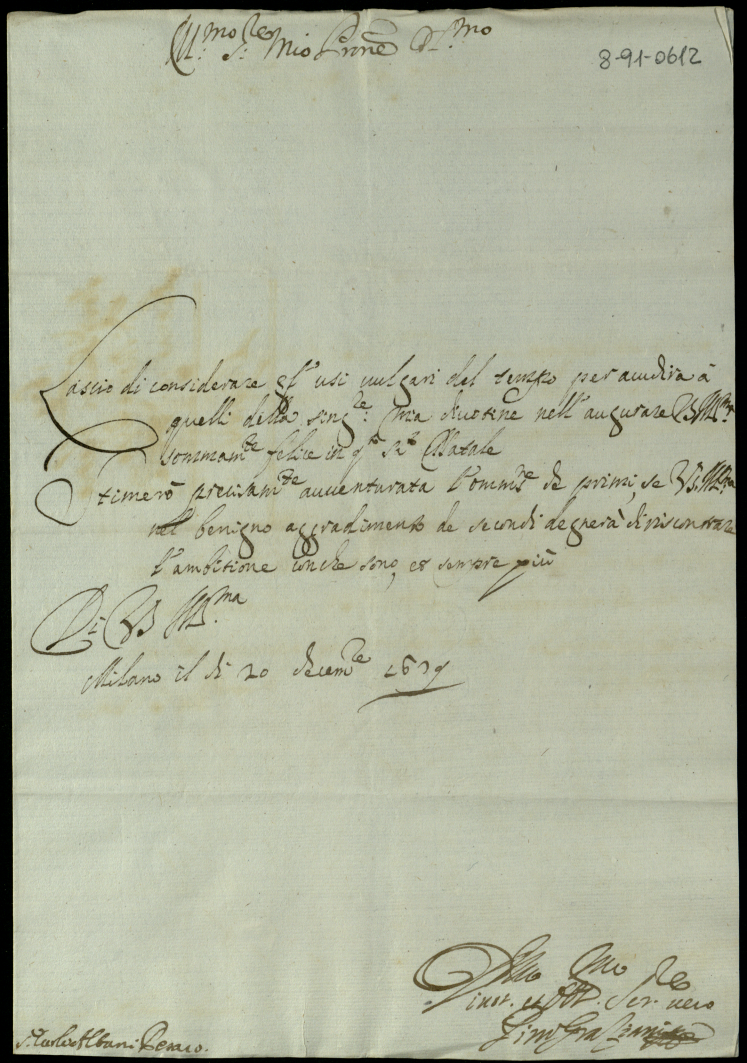 Ill.mo S.re Mio P.rone Col.mo
8-91-0612
Lascio di considerare gl' usi vulgari del tempo per accudire à
quelli della sing.re mia divotine nell' augurare VS Ill.ma
sommam.te felice in q.to S.to Natale
Stimerò precisam.te avventurata l' omm.ne de primi, se VS. Ill.ma
nel benigno aggradimento de secondi degnerà di riscontrare
l' ambitione con che sono, et sempre più
Di VS Ill.ma
Milano il di 20 decem.re 1679
Devo.mo
et Obl. Ser.re vero
S.r Carlo Albani Pesaro.